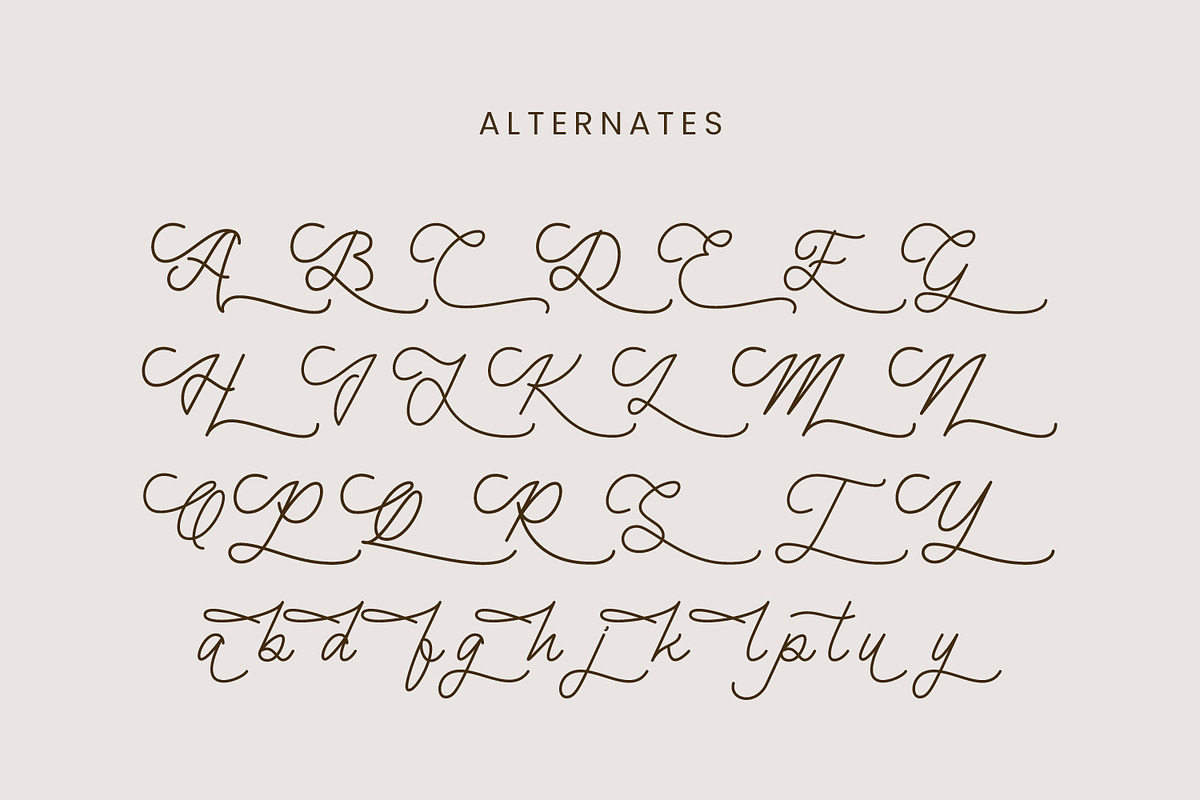 ALTERNATES
A B C D E F G
H I J K L M N
O P Q R S T Y
a b d f g h j k l p t u y